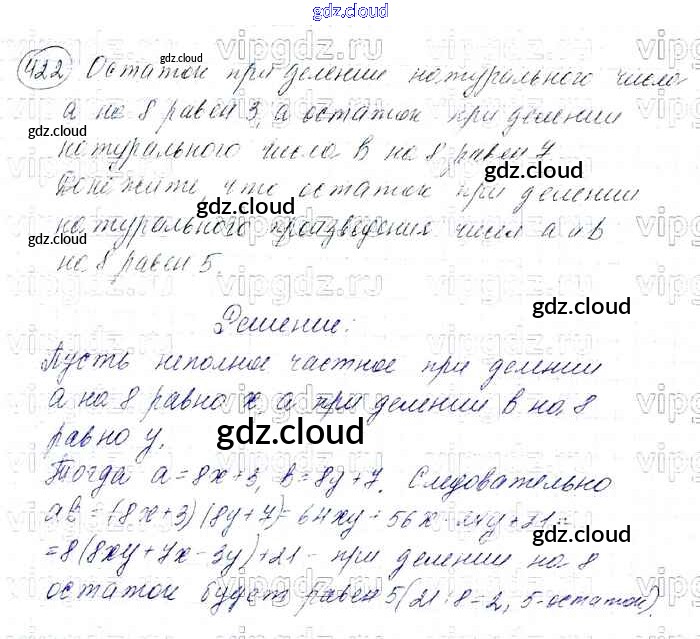 gdz.cloud
422 Остаток при делении натурального числа
a на 8 равен 3, а остаток при делении
натурального числа b на 8 равен 7.
Докажите, что остаток при делении
натурального произведения чисел a и b
на 8 равен 5.
Решение:
Пусть неполное частное при делении
a на 8 равно x, а при делении b на 8
равно y.
Тогда a = 8x+3, b = 8y+7. Следовательно
ab = (8x+3)(8y+7)= 64xy + 56x 24y + 21 =
=8(8xy+7x-3y)+21 - при делении на 8
остаток будет равен 5 (21:8=2, 5-остаток).
gdz.cloud
gdz.cloud
gdz.cloud
gdz.cloud
gdz.cloud
gdz.cloud
gdz.cloud
gdz.cloud
gdz.cloud
gdz.cloud
gdz.cloud
vipgdz.ru